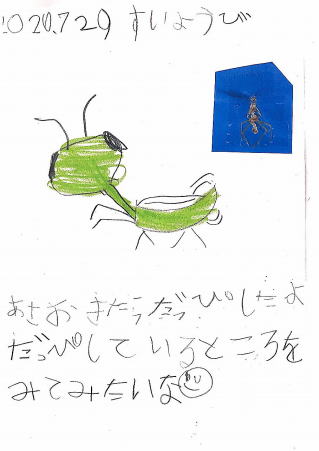 2020.7 29 すいようび
あさおきたらだっぴしたよ
だっぴしているところを
みてみたいな